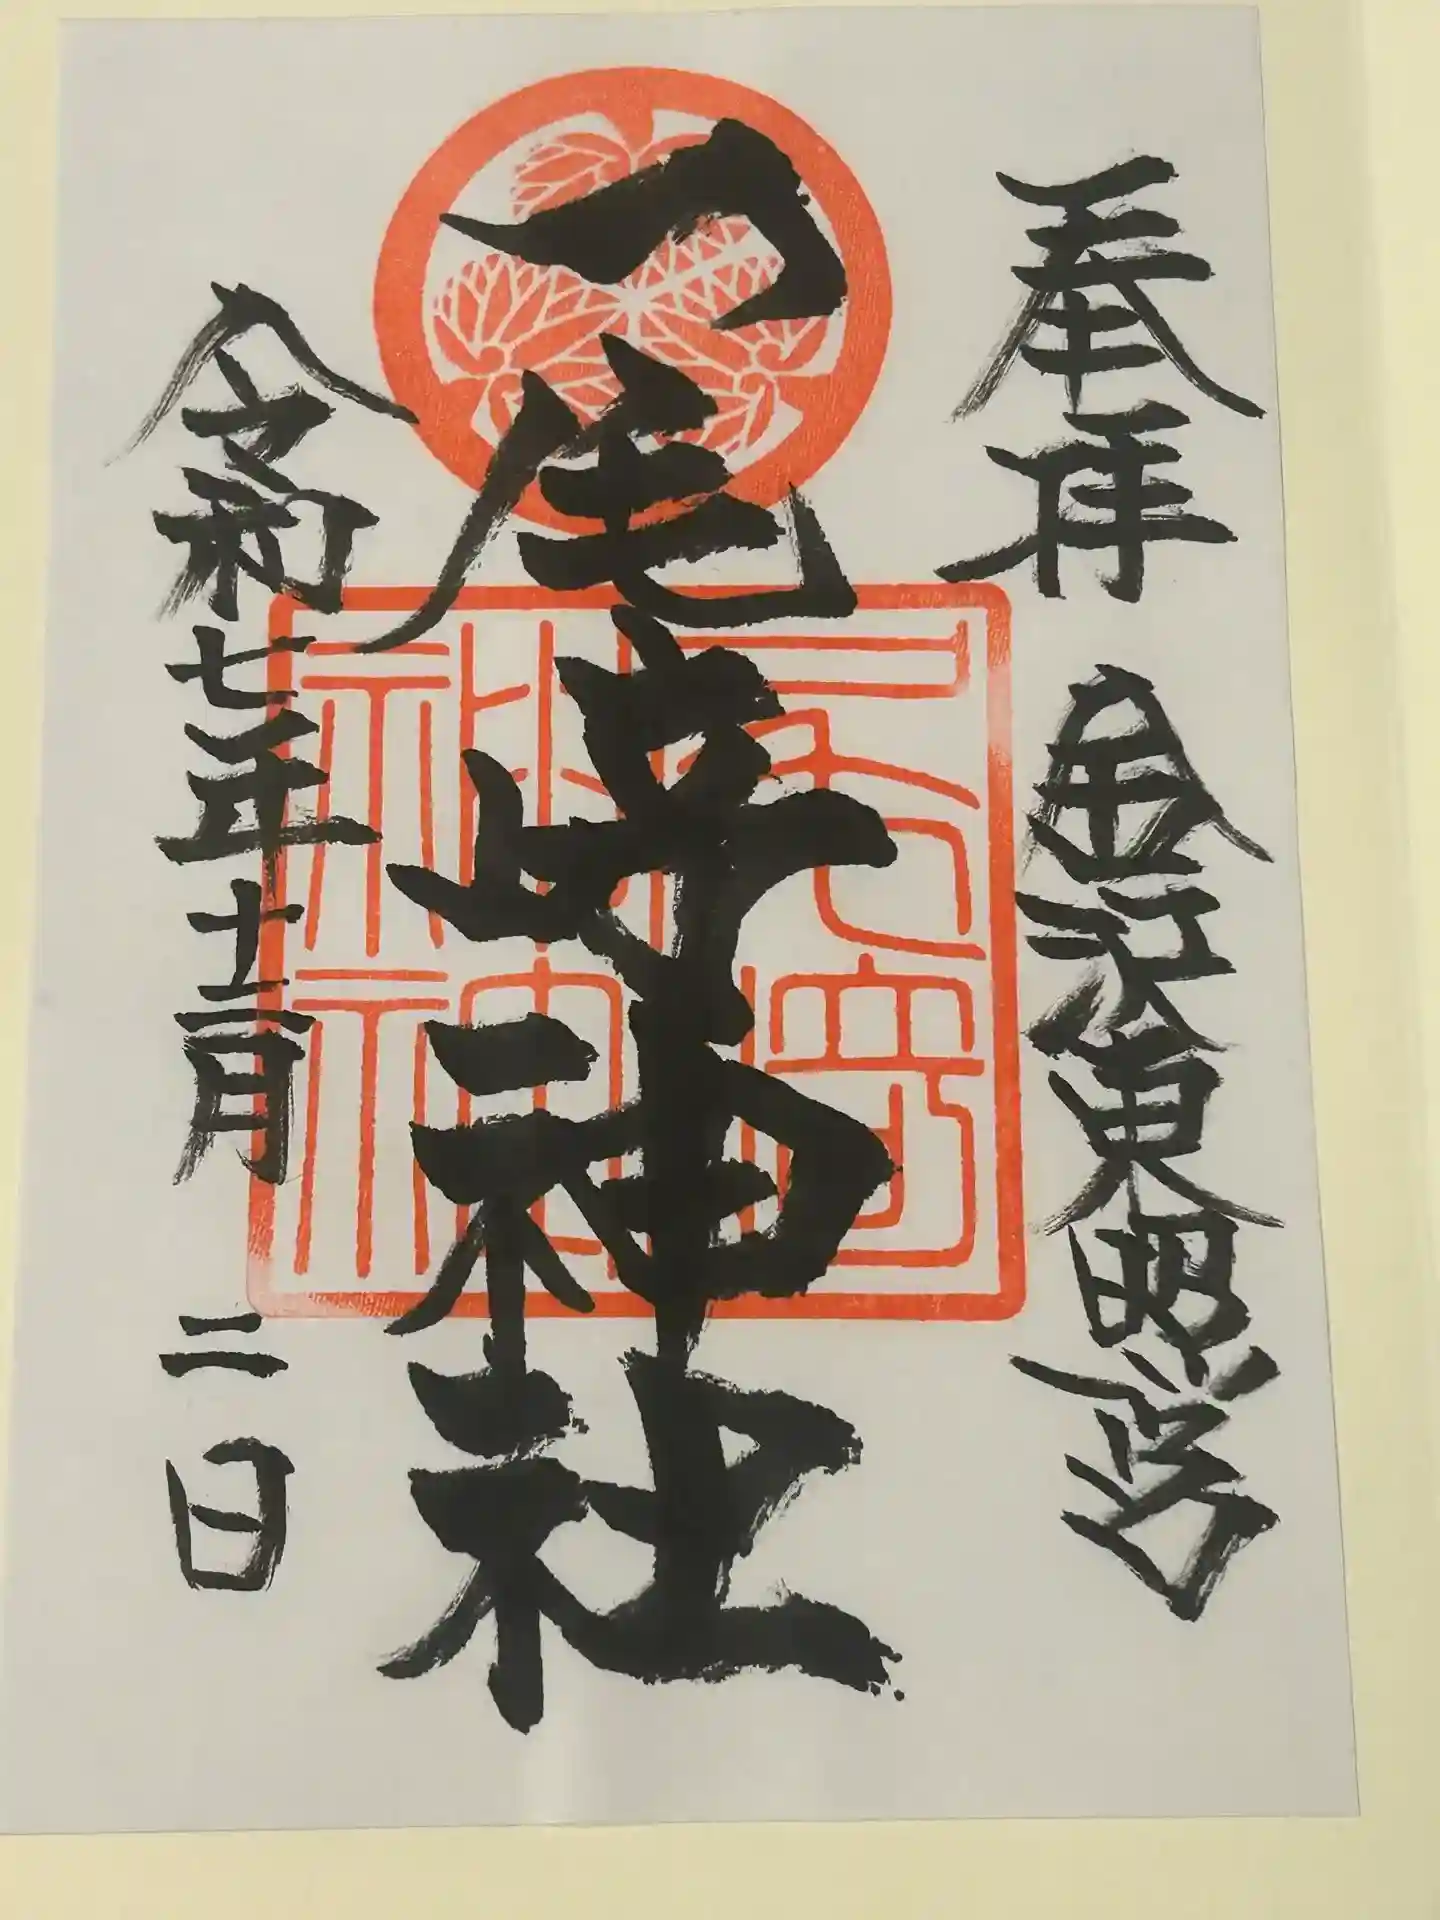 奉拝 金沢東照宮
尾崎神社
令和七年十二月二日